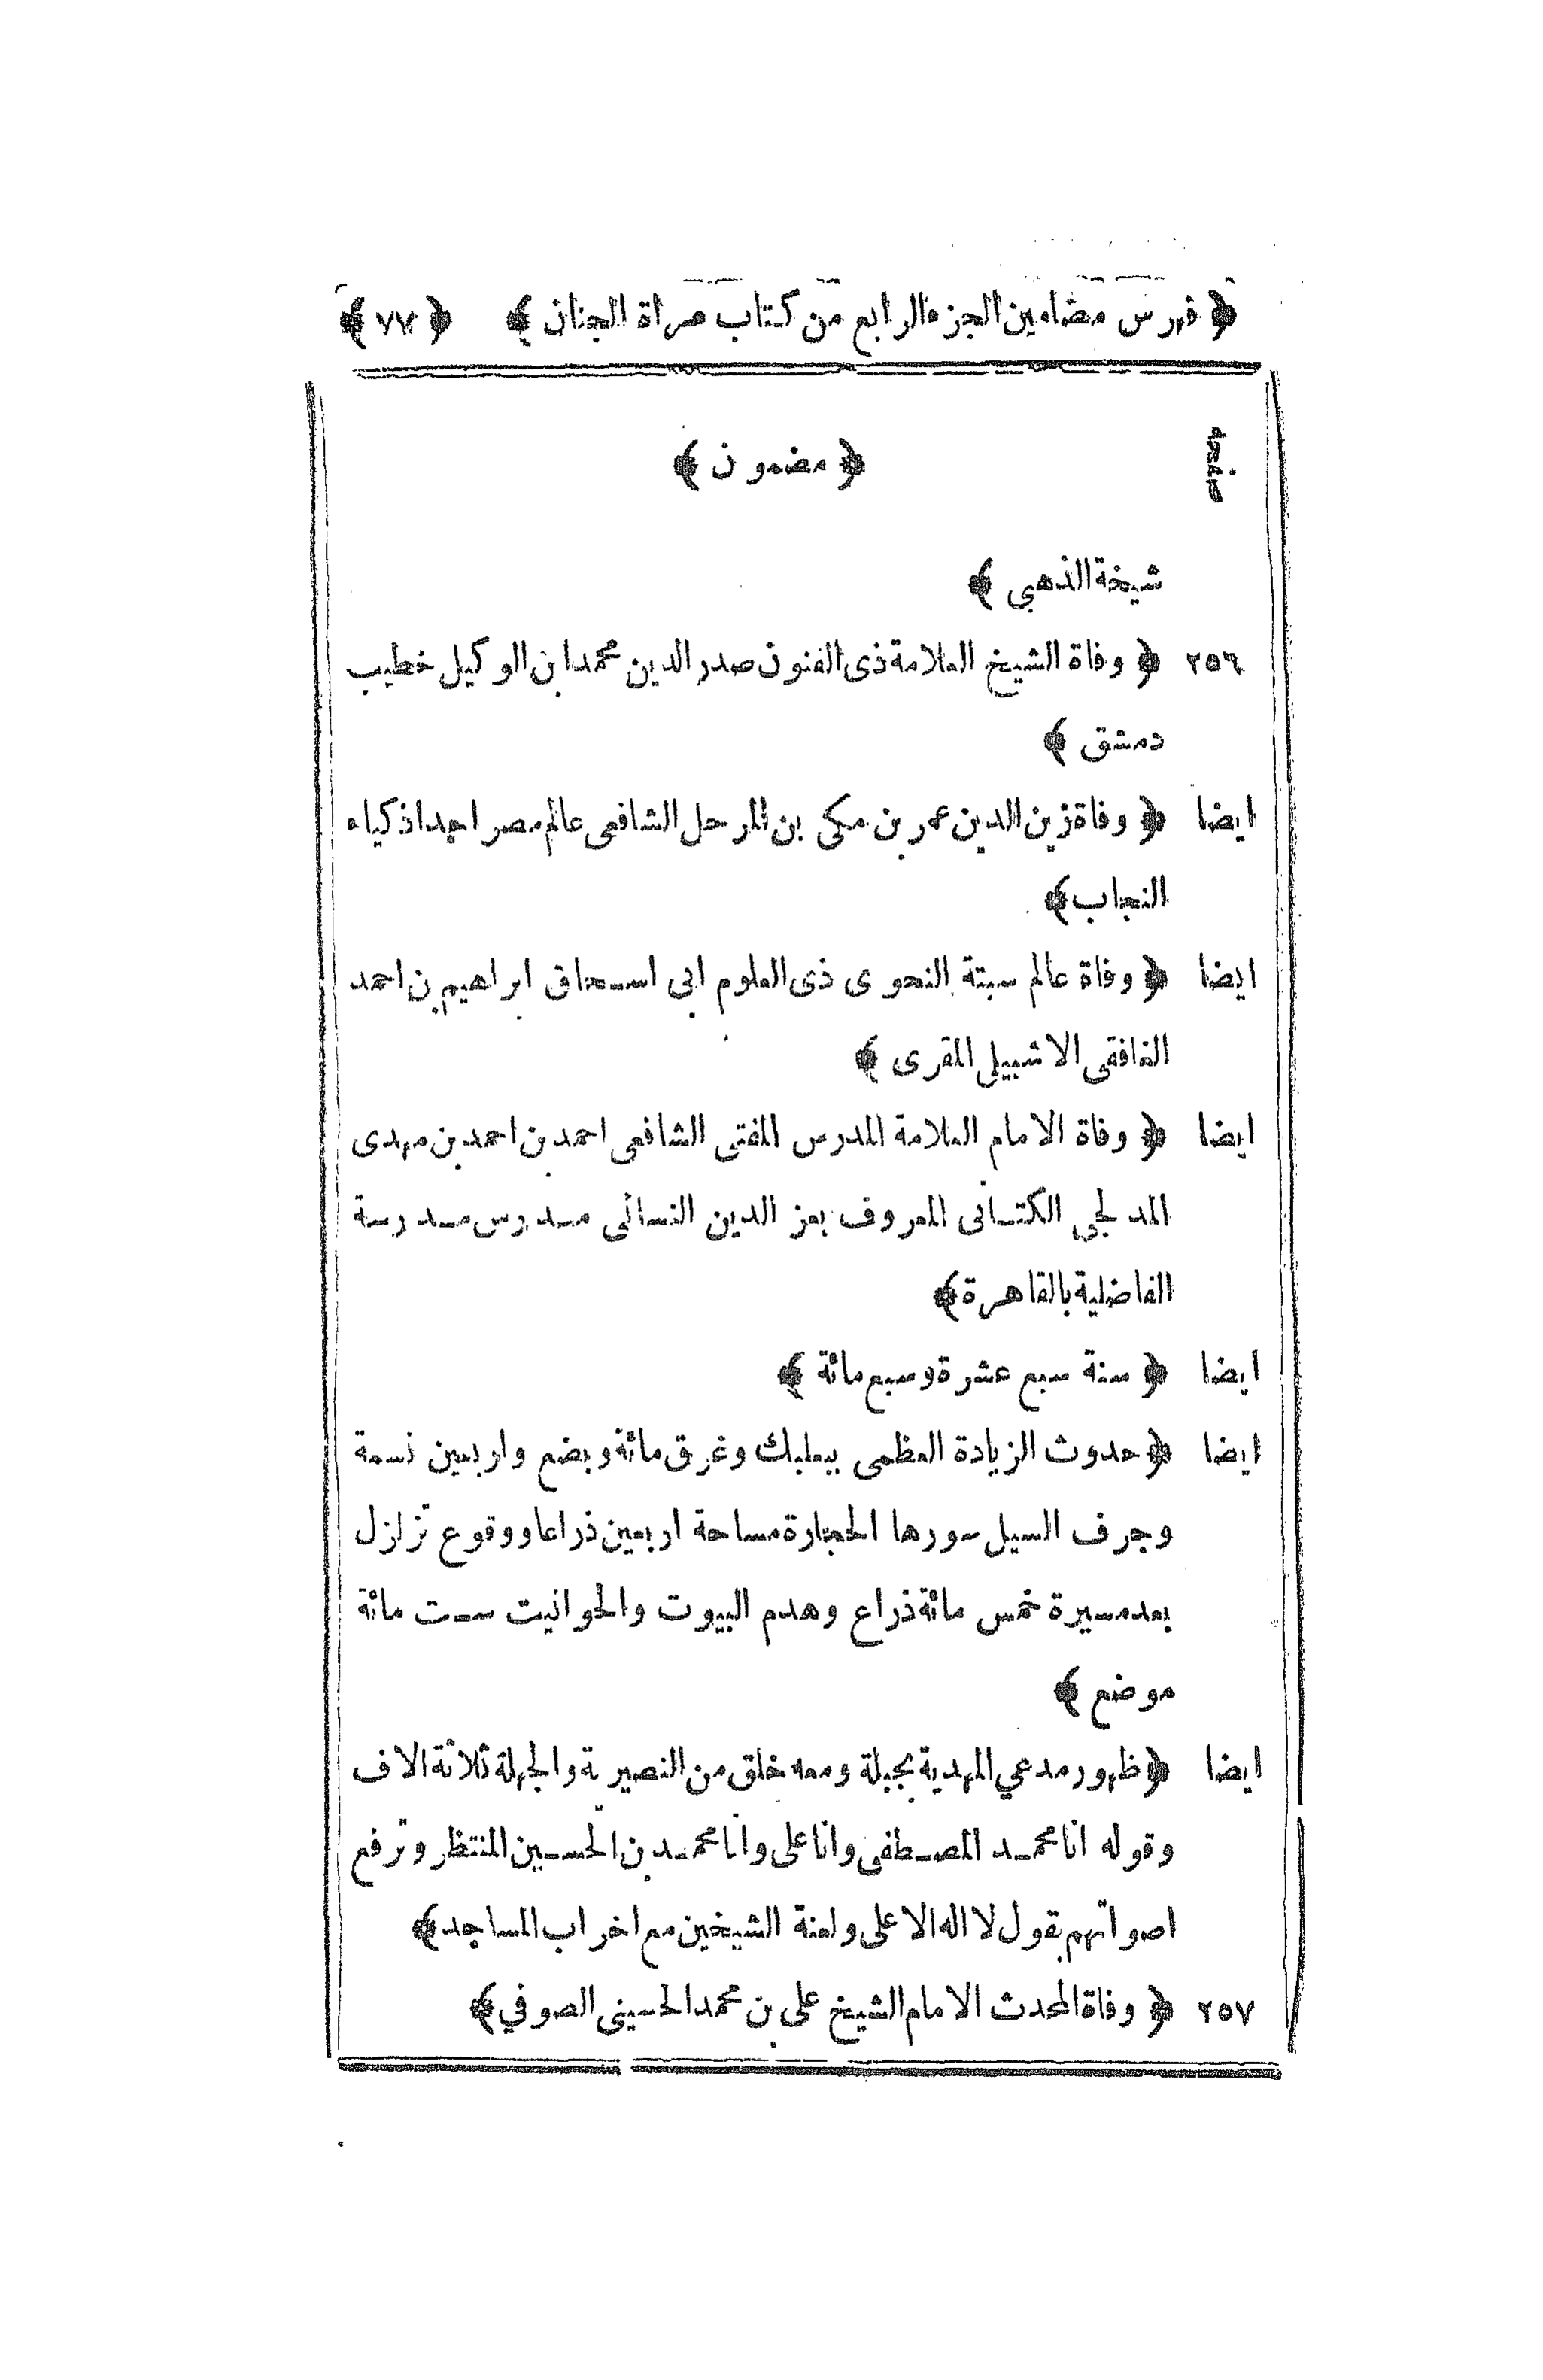 ﴿ فهرس مضامين الجزء الرابع من كتاب مرأة الجنان ﴾ ﴿ ٧٧ ﴾
صفحه ﴿ مضمون ﴾
شيخة الذهبي ﴾
٢٥٦ ﴿ وفاة الشيخ العلامة ذى الفنون صدر الدين محمد ابن الوكيل خطيب
دمشق ﴾
ايضا ﴿ وفاة زين الدين عمر بن مكى بن المرحل الشافعى عالم مصر احد اذكياء
النجاب ﴾
ايضا ﴿ وفاة عالم سبتة النحوى ذى العلوم ابى اسحاق ابراهيم بن احمد
الغافقى الاشبيلى المقرى ﴾
ايضا ﴿ وفاة الامام العلامة المدرس المفتى الشافعى احمد بن احمد بن مهدى
المدلجي الكتانى المعروف بعز الدين النسائى مدرس مدرسة
الفاضلية بالقاهرة ﴾
ايضا ﴿ سنة سبع عشرة وسبع مائة ﴾
ايضا ﴿ حدوث الزيادة العظمى ببعلبك وغرق مائة وبضع واربعين نسمة
وجرف السيل سورها الحجارة مساحة اربعين ذراعا ووقوع تزلزل
بعد مسيرة خمس مائة ذراع وهدم البيوت والحوانيت ست مائة
موضع ﴾
ايضا ﴿ ظهور مدعي المهدية بجبلة ومعه خلق من النصيرية والجهلة ثلاثة الاف
وقوله انا محمد المصطفى وانا على وانا محمد بن الحسين المنتظر وترفع
اصواتهم بقول لا اله الا على ولعنة الشيخين مع اخراب المساجد ﴾
٢٥٧ ﴿ وفاة المحدث الامام الشيخ على بن محمد الحسينى الصوفي ﴾